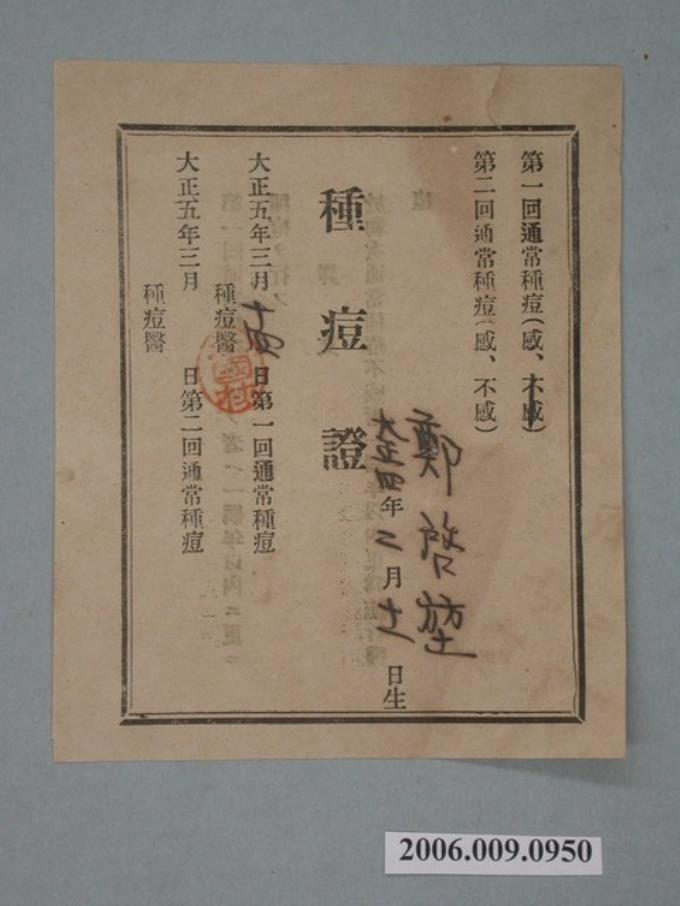 第一回通常種痘(感、不感)
第二回通常種痘(感、不感)
鄭啓
大正四年二月十二日生
種痘證
大正五年三月十四日第一回通常種痘
種痘醫
大正五年三月 日第二回通常種痘
種痘醫
2006.009.0950